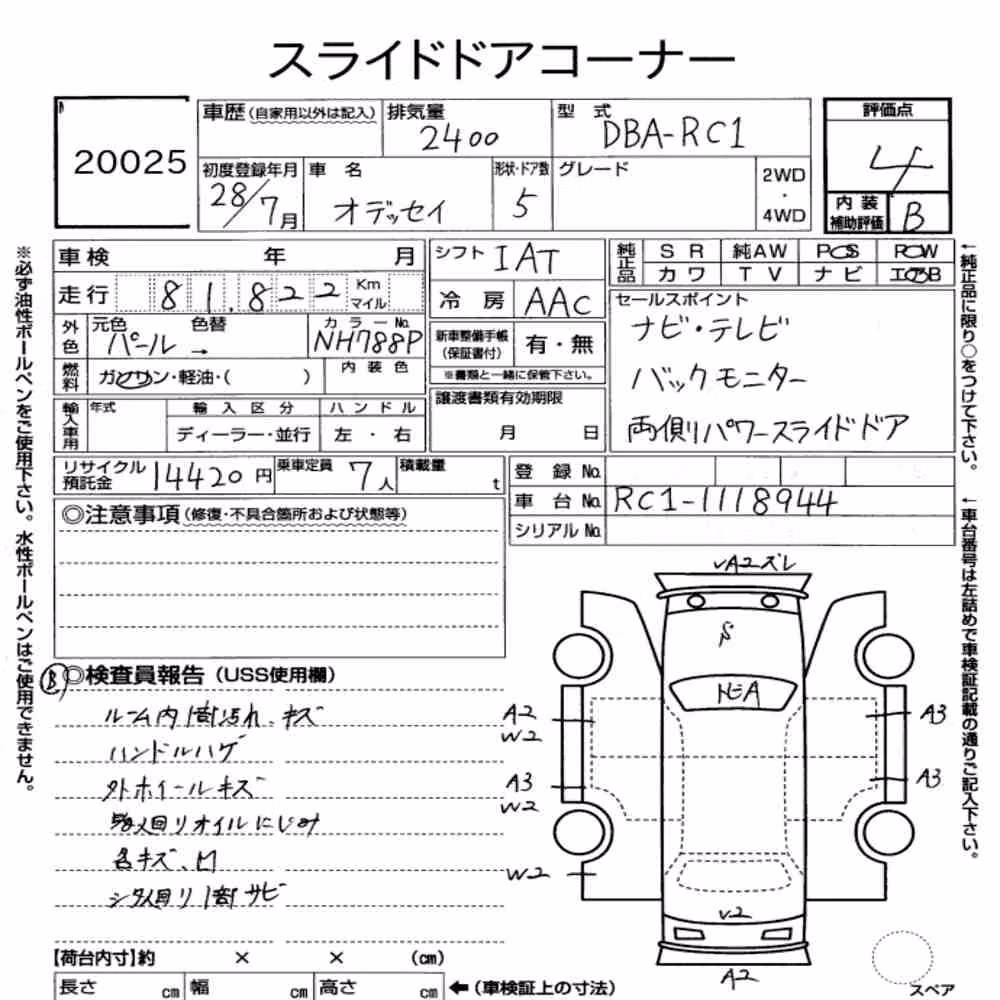 スライドドアコーナー
20025
車歴 (自家用以外は記入) 排気量 2400 型式 DBA-RC1
評価点 4
初度登録年月 28/7月 車名 オデッセイ 形状・ドア数 5 グレード 2WD ・ 4WD
内装補助評価 B
車検 年 月
シフト IAT
純正品 SR 純AW PS PW
カワ TV ナビ エアB
走行 81,822 Km マイル
冷房 AAC
セールスポイント
ナビ・テレビ
バックモニター
両側パワースライドドア
外色 元色 パール 色替 → カラーNo. NH788P
新車整備手帳(保証書付) 有・無
※書類と一緒に保管下さい。
燃料 ガソリン・軽油・( ) 内装色
譲渡書類有効期限
月 日
輸入車用 年式 輸入区分 ハンドル
ディーラー・並行 左・右
リサイクル預託金 14420円 乗車定員 7人 積載量 t
登録No.
車台No. RC1-1118944
シリアルNo.
◎注意事項 (修復・不具合箇所および状態等)
Ⓑ◎検査員報告 (USS使用欄)
ルーム内1部汚れ、キズ
ハンドルハゲ
外ホイールキズ
回リオイルにじみ
各キズ、凹
シタ回リ1部サビ
A2ズレ
S
トビA
A2
W2
A3
W2
W2
A3
A3
V2
A2
スペア
【荷台内寸】約 × × (cm)
長さ cm 幅 cm 高さ cm ←(車検証上の寸法)
※必ず油性ボールペンをご使用下さい。水性ボールペンはご使用できません。
←純正品に限り○をつけて下さい。
←車台番号は左詰めで車検証記載の通りご記入下さい。